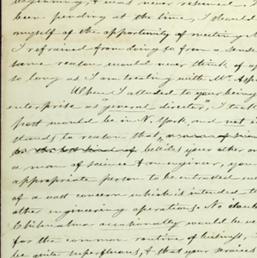 beginning, & was never renewed. I
been pending at the time, I should
myself of the opportunity of meeting
I refrained from doing so from a sense
same reason would never think of
so long as I am treating with Mr.
When I alluded to your being
enterprise as "general director", I
post would be in N. York, and not
stands to reason that,
besides your other
a man of science & an engineer, you
appropriate person to be entrusted
of a vast concern which is intended
other engineering operations. No doubt
Chihuahua occasionally would be
for the common routine of business, it
be quite superfluous, & that your services